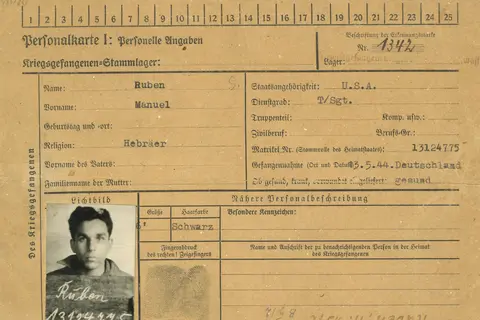 1 2 3 4 5 6 7 8 9 10 11 12 13 14 15 16 17 18 19 20 21 22 23 24 25
Personalkarte I: Personelle Angaben
Beschriftung der Erkennungsmarke
Nr. 1342
Kriegsgefangenen-Stammlager:
Lager:
Des Kriegsgefangenen
Name: Ruben
Vorname: Manuel
Geburtstag und -ort:
Religion: Hebräer
Vorname des Vaters:
Familienname der Mutter:
Staatsangehörigkeit: U.S.A.
Dienstgrad: T/Sgt.
Truppenteil: Komp. usw.:
Zivilberuf: Berufs-Gr.:
Matrikel Nr. (Stammrolle des Heimatstaates): 13124775
Gefangennahme (Ort und Datum): 13.5.44 Deutschland
Ob gesund, krank, verwundet eingeliefert: gesund
Lichtbild
Nähere Personalbeschreibung
Größe Haarfarbe Besondere Kennzeichen:
Schwarz
Fingerabdruck
des rechten! Zeigefingers!
Name und Anschrift der zu benachrichtigenden Person in der Heimat
des Kriegsgefangenen
Ruben
13124775